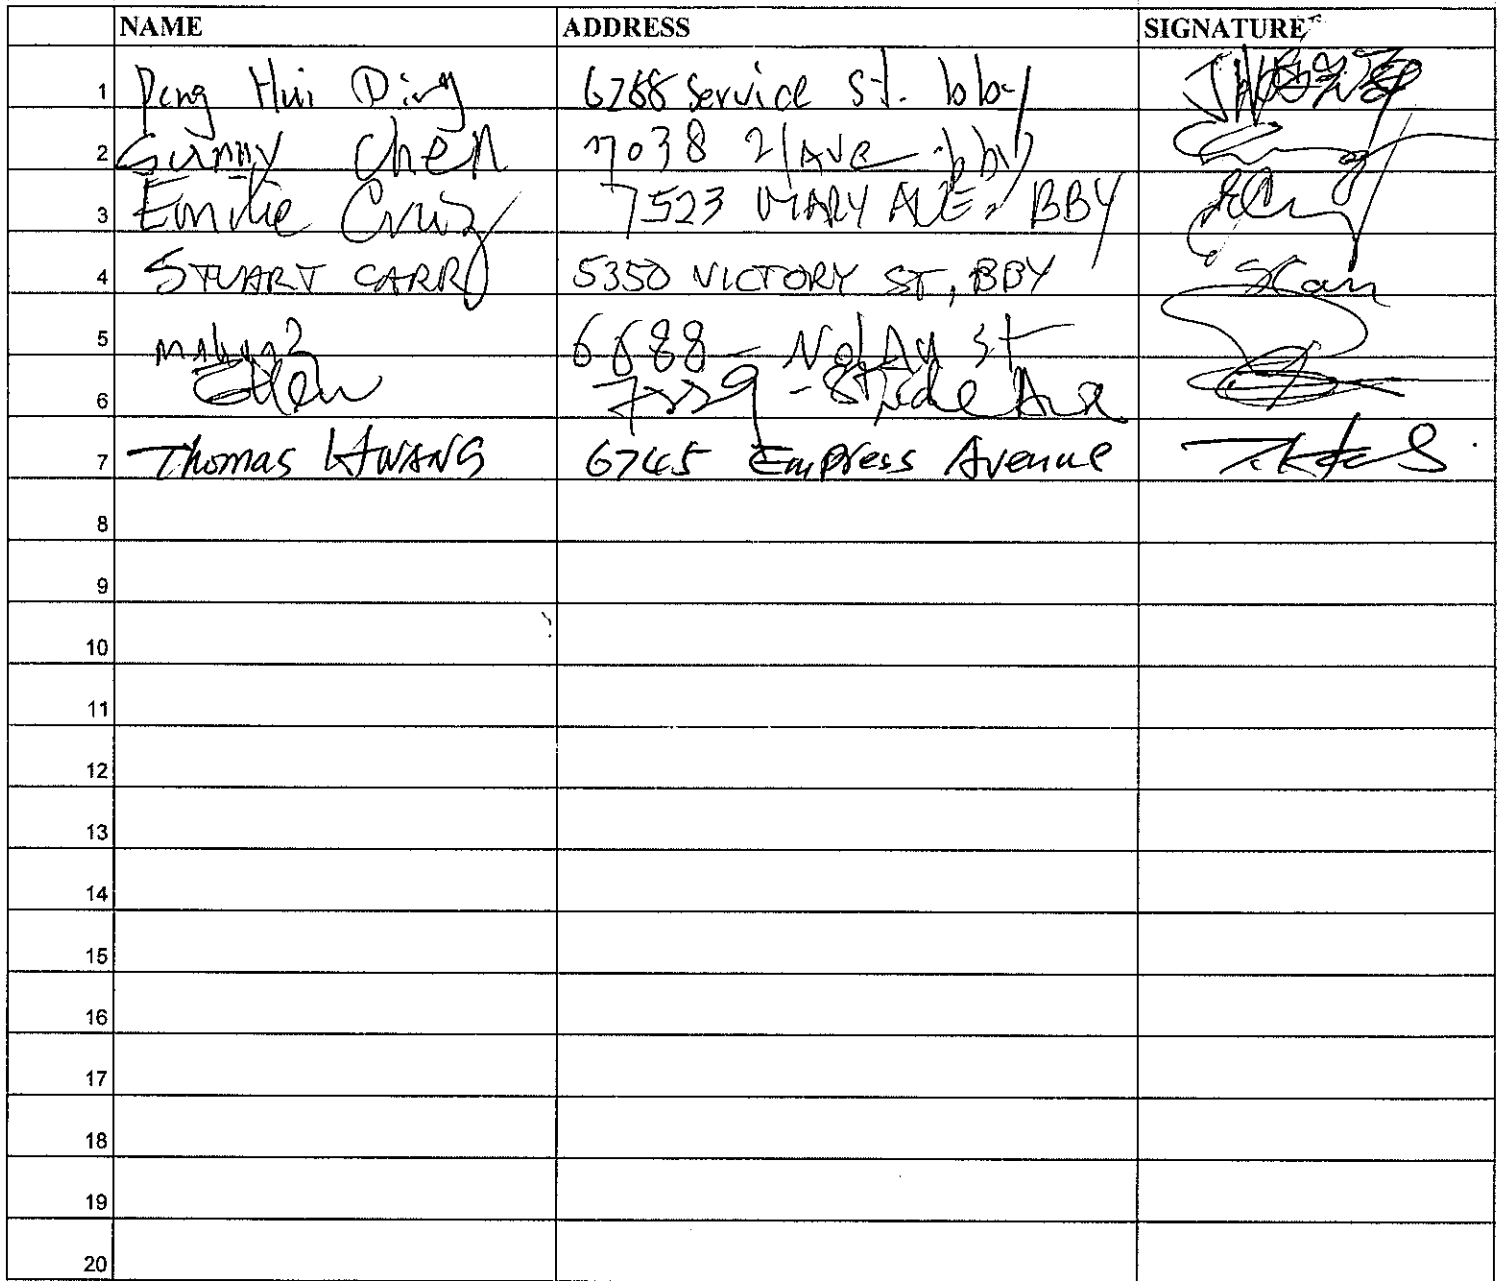 NAME ADDRESS SIGNATURE
1 Peng Hui Ding 6288 Service St. bby
2 Sunny Chen 7038 21 Ave bby
3 Emilie Cruz 7523 MARY AVE. BBY
4 STUART CARR 5350 VICTORY ST, BBY SCarr
5 6688 - St
6 Ellen 7229 -
7 Thomas HWANG 6745 Empress Avenue
8
9
10
11
12
13
14
15
16
17
18
19
20